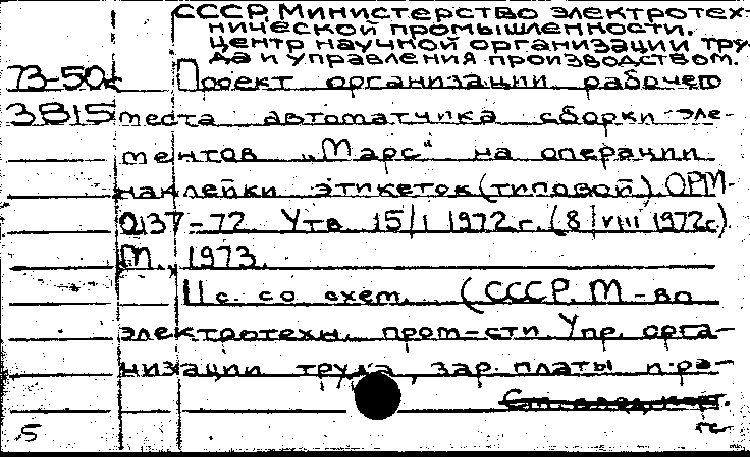 СССР. Министерство электротех-
нической промышленности.
Центр научной организации тру-
да и управления производством.
73-50к Проект организации рабочего
3815 места автоматчика сборки эле-
ментов „Марс“ на операции
наклейки этикеток (типовой). ОРМ-
0137-72. Утв. 15/I 1972 г. (8/VIII 1972 г.)
М., 1973.
11 с. со схем. (СССР. М-во
электротехн. пром-сти. Упр. орга-
низации труда, зар. платы и ра-
См. след. карт.
5